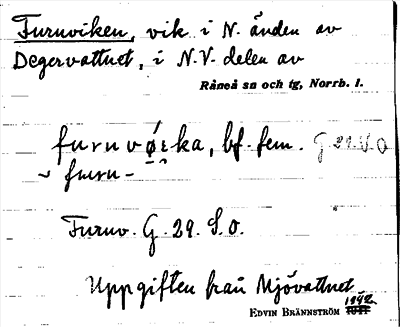 Furuviken, vik i N. änden av
Degervattnet, i N.V. delen av
Råneå sn och tg, Norrb. l.
furuvǿɛka, bf. fem. G 29. V. O
~ furu -
Furuv. G. 29. S. O.
Uppgiften från Mjövattnet
1942
EDVIN BRÄNNSTRÖM